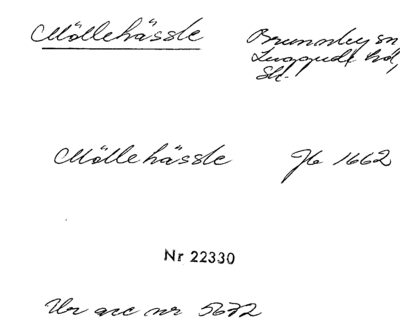 Möllehässle Brunnby sn
Luggude hd,
Sk.
Möllehässle Jb 1662
Nr 22330
Ur acc nr 5672